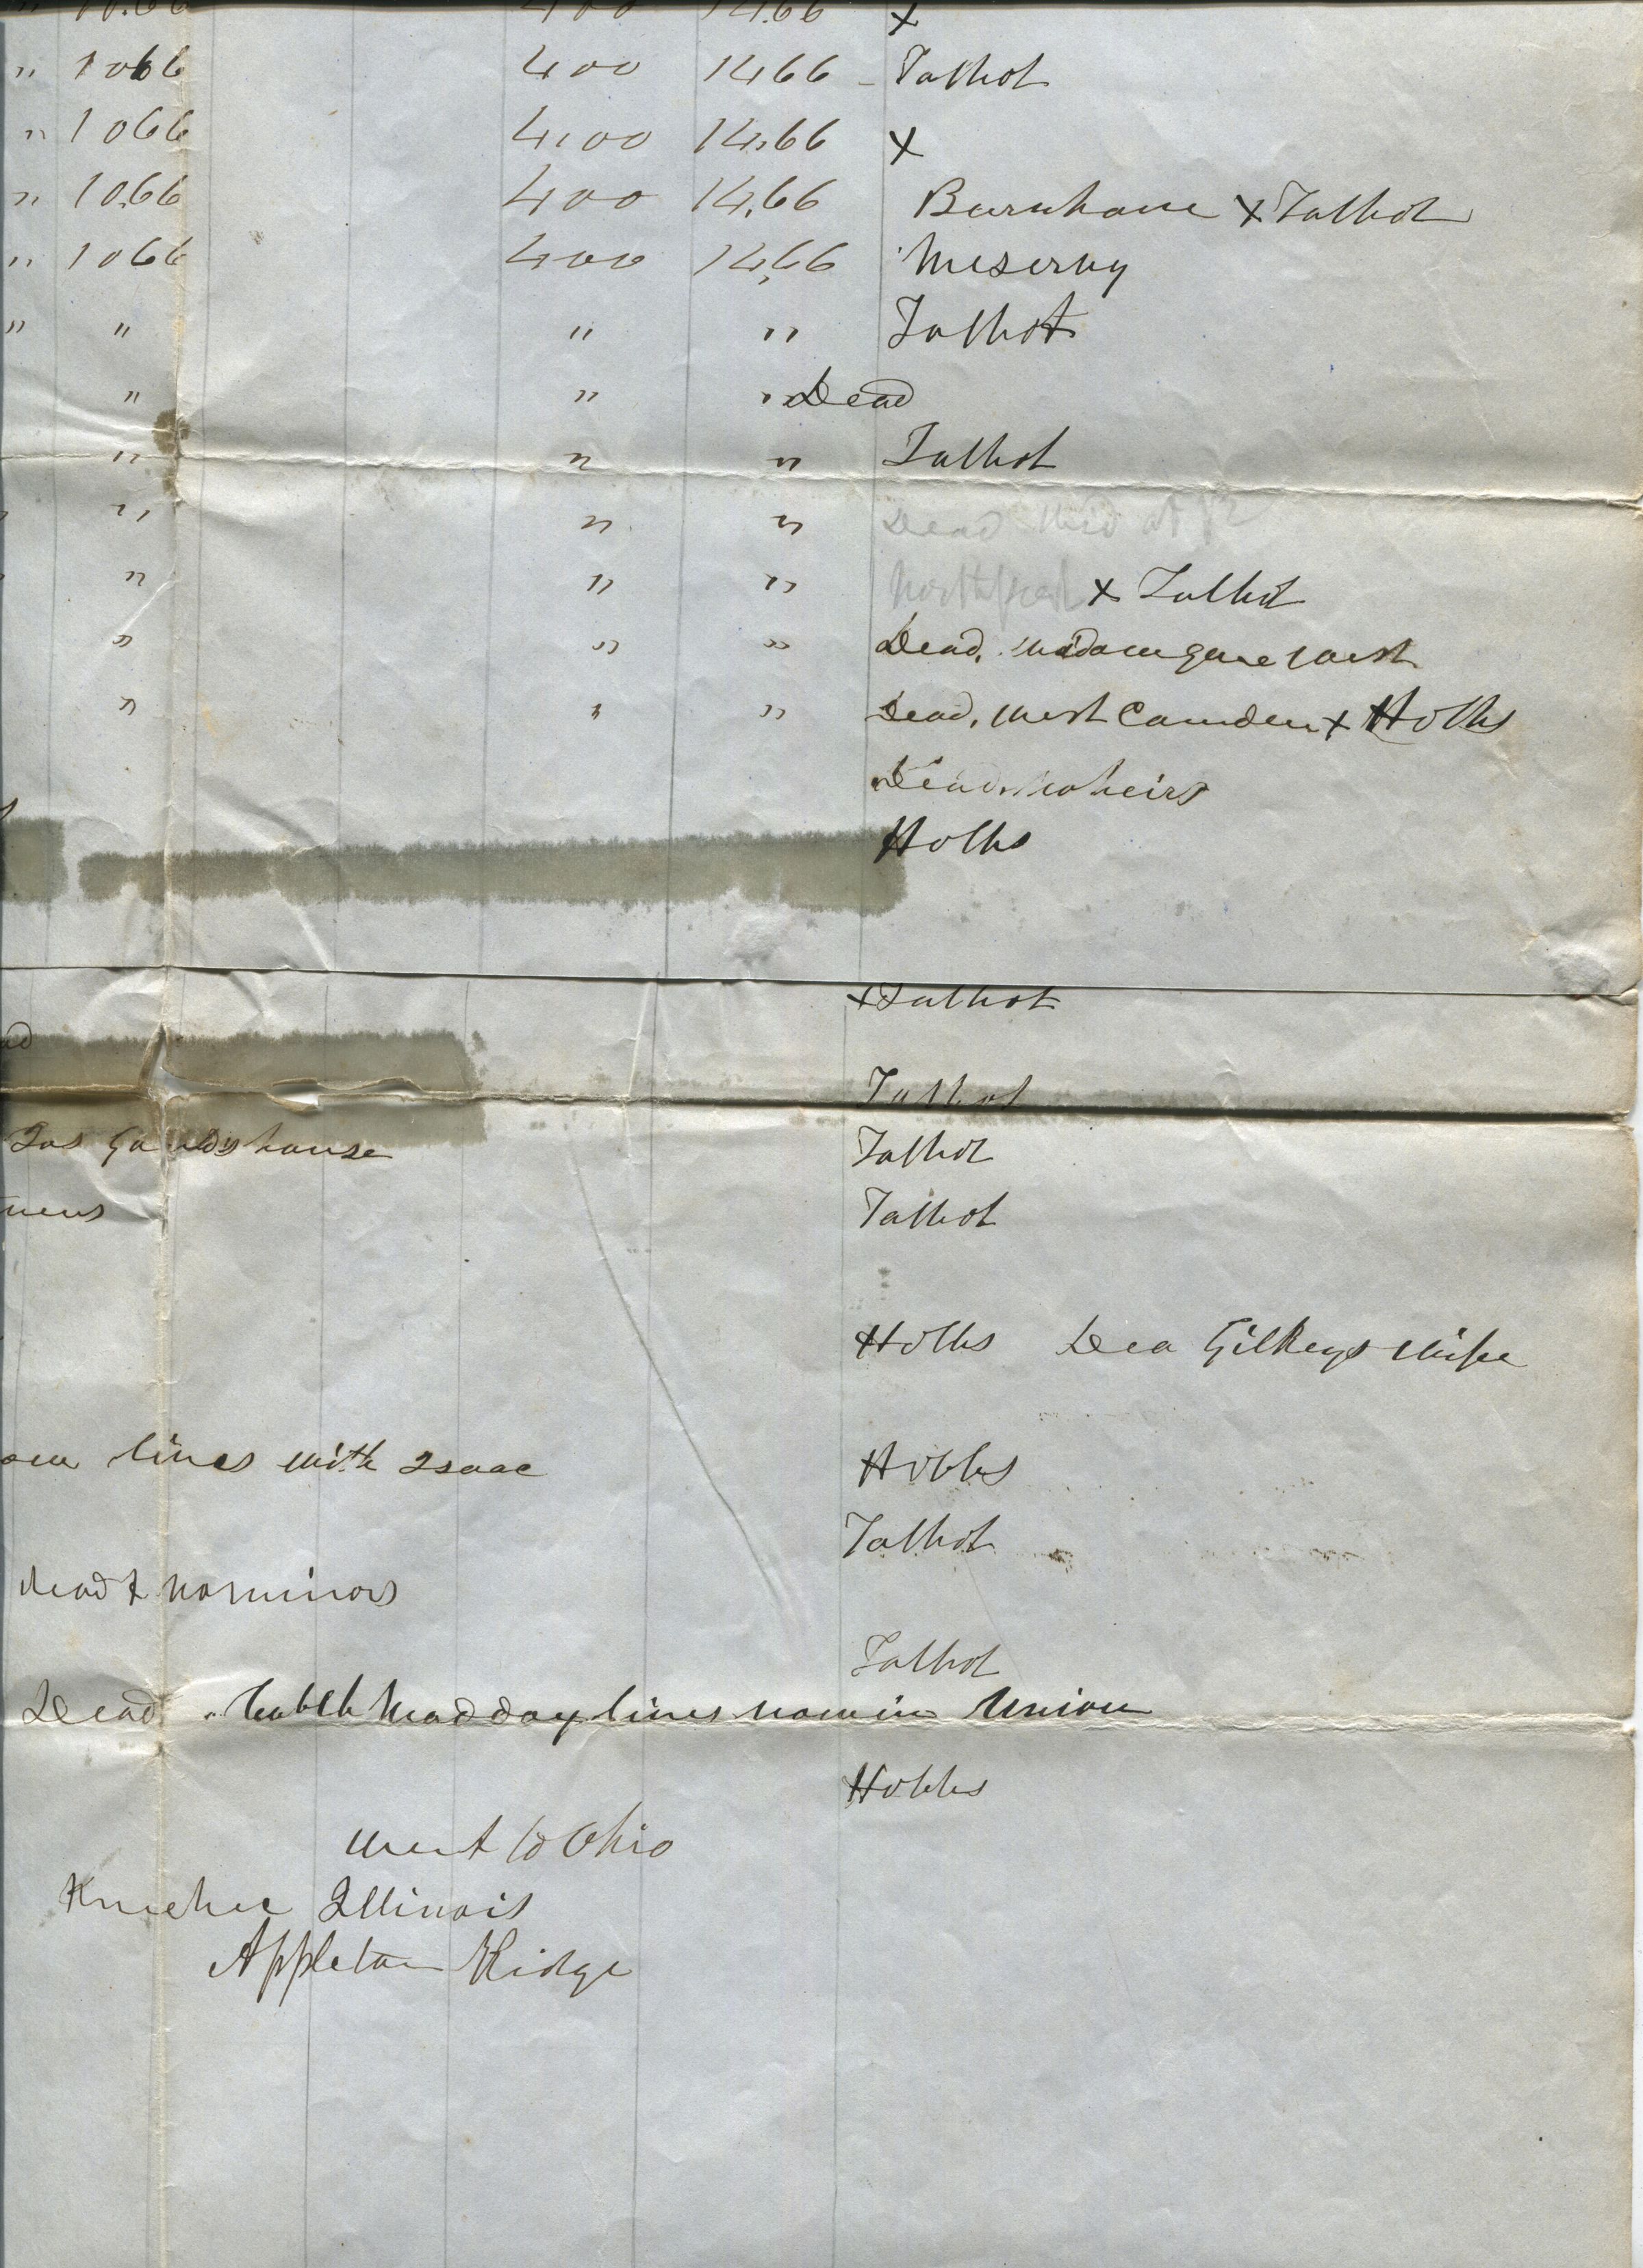 " 10.66 400 14.66 x
" 1066 400 1466 - Talbot
" 1066 4,00 14,66 x
" 10.66 400 14,66 Burnham x Talbot
" 1066 400 14,66 Meservy
" " " " Talbot
" " " Dead
" " " Talbot
" " " Dead Wid at
" " " Northport x Talbot
" " " Dead, widow gone west
" " " Dead, West Camden x Hobbs
Dead, no heirs
Hobbs
x Talbot
Talbot
Jas Gould's house Talbot
Talbot
Hobbs Dea Gilkeys wife
lives with Isaac Hobbs
Talbot
dead & no minors
Talbot
Dead. Caleb Maddox lives now in Union
Hobbs
went to Ohio
Illinois
Appleton Ridge